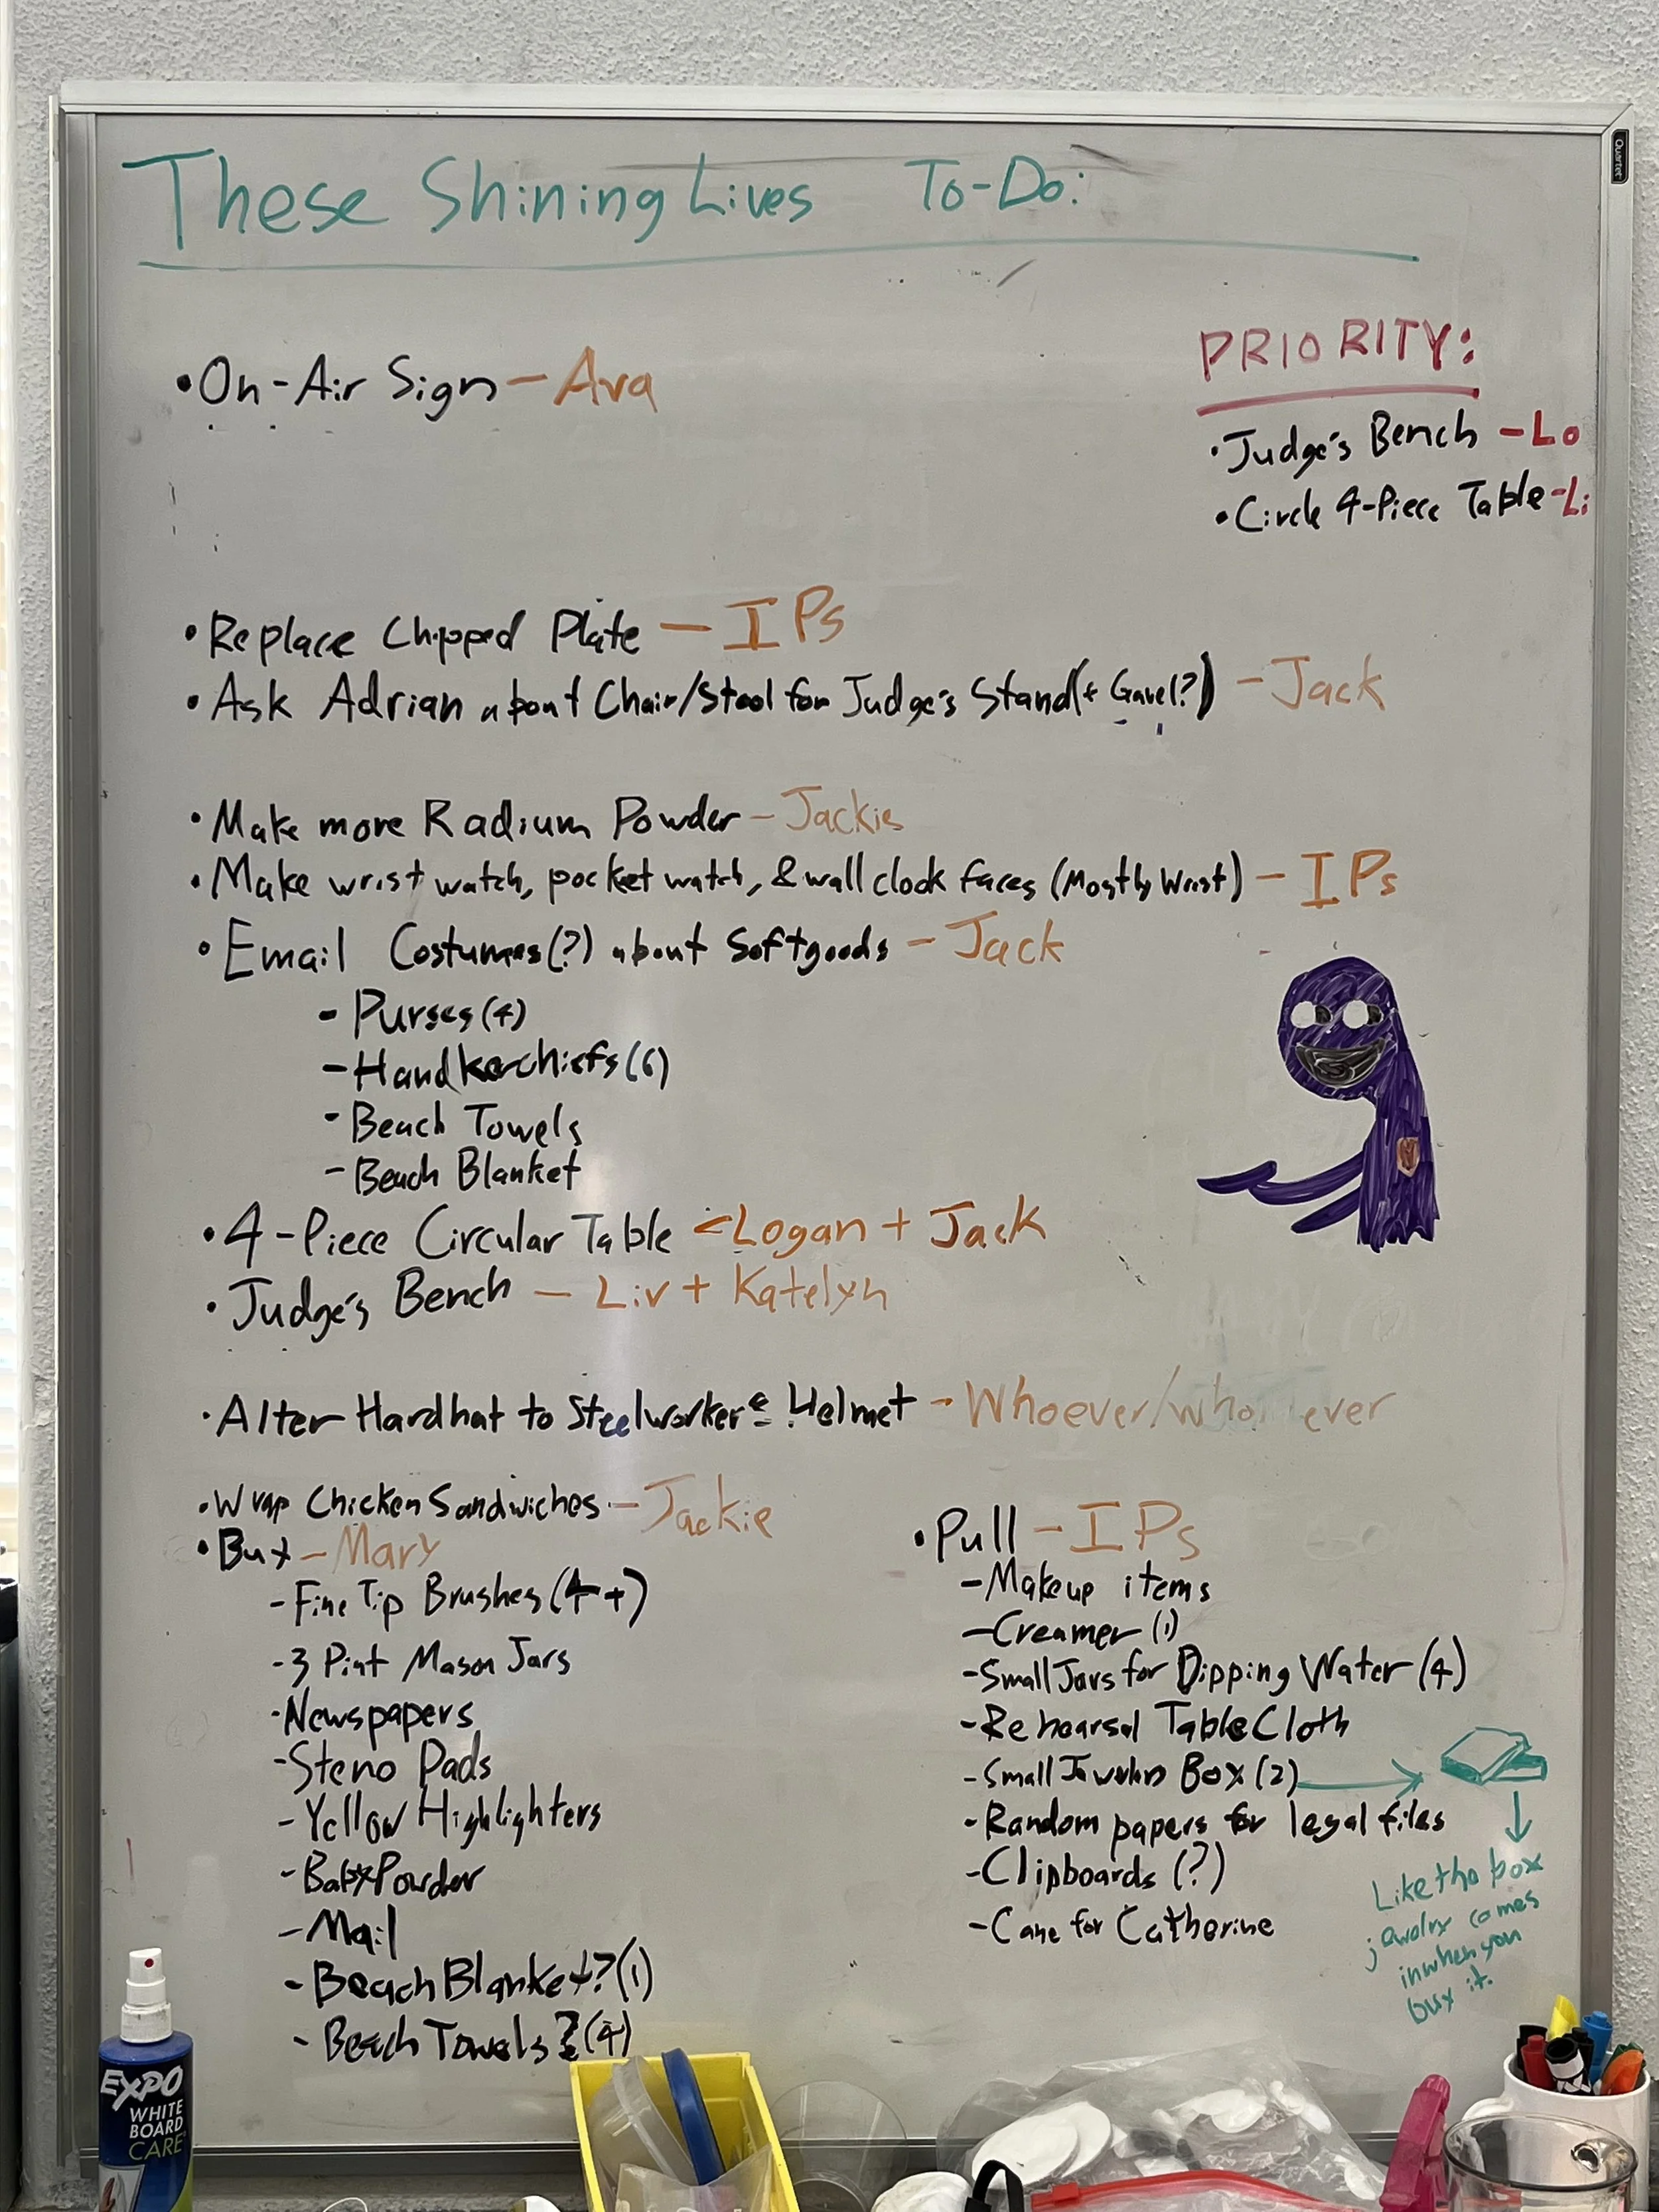 These Shining Lives To-Do:
PRIORITY:
• Judge's Bench - Lo
• Circle 4-Piece Table - Li
• On-Air Sign - Ava
• Replace Chipped Plate - IPs
• Ask Adrian about Chair/Stool for Judge's Stand (+ Gavel?) - Jack
• Make more Radium Powder - Jackie
• Make wrist watch, pocket watch, & wall clock faces (Mostly Wrist) - IPs
• Email Costumes(?) about Softgoods - Jack
- Purses (4)
- Handkerchiefs (6)
- Beach Towels
- Beach Blanket
• 4-Piece Circular Table - Logan + Jack
• Judge's Bench - Liv + Katelyn
• Alter Hardhat to Steelworker's Helmet - Whoever/who ever
• Wrap Chicken Sandwiches - Jackie
• Buy - Mary
- Fine Tip Brushes (4+)
- 3 Pint Mason Jars
- Newspapers
- Steno Pads
- Yellow Highlighters
- Baby Powder
- Mail
- Beach Blanket? (1)
- Beach Towels? (4)
• Pull - IPs
- Makeup items
- Creamer (1)
- Small Jars for Dipping Water (4)
- Rehearsal Table Cloth
- Small Jewelry Box (2)
- Random papers for legal files
- Clipboards (?)
- Cane for Catherine
Like the box
jewelry comes
in when you
buy it.
Quartet
EXPO
WHITE
BOARD
CARE